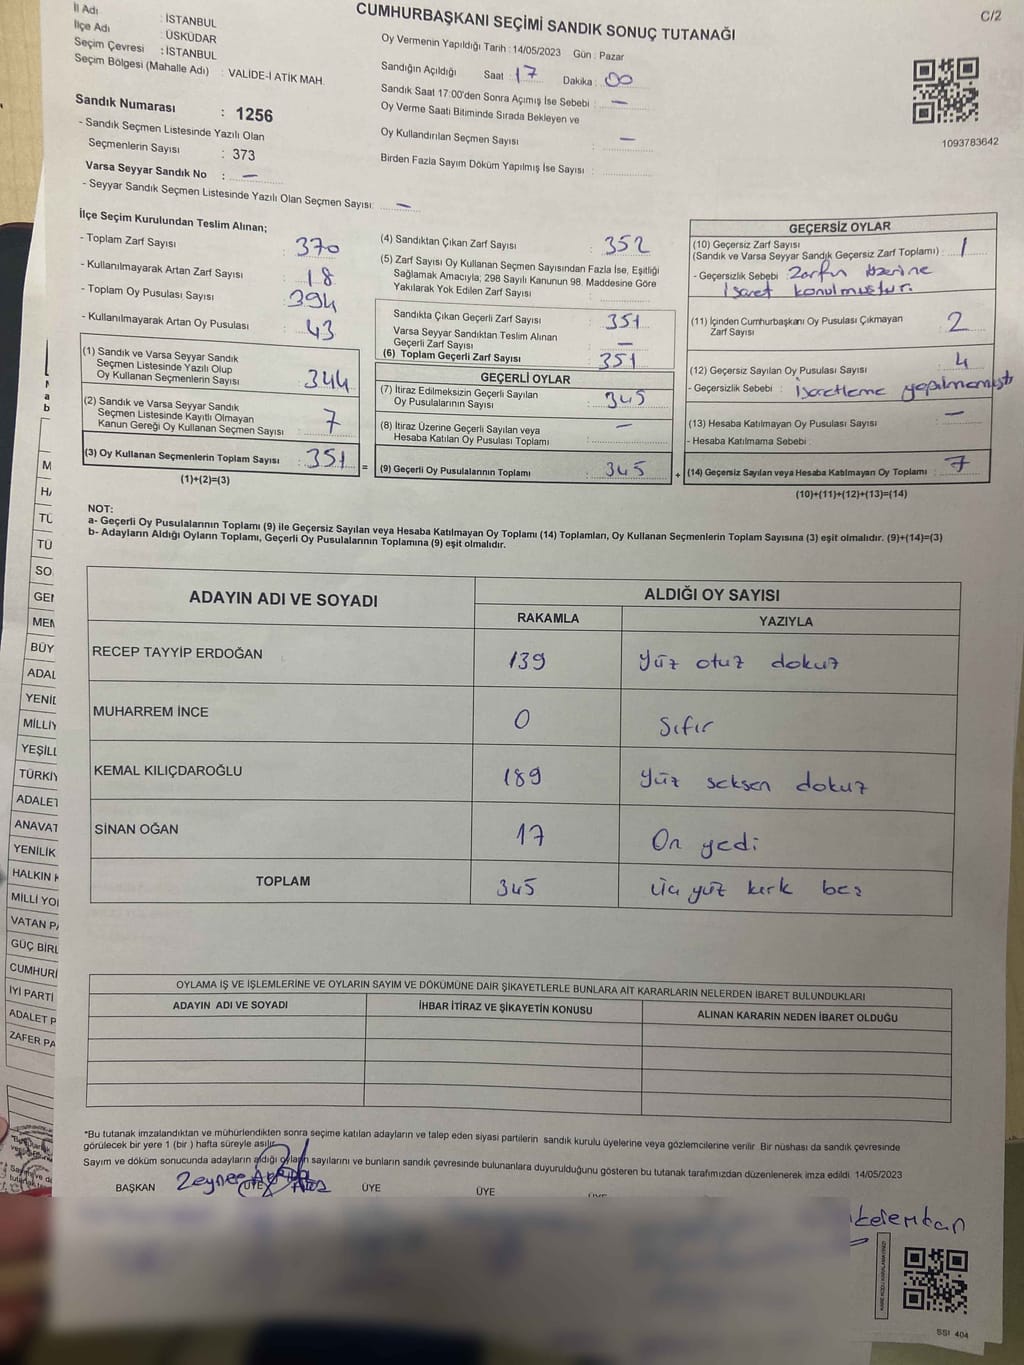 C/2
CUMHURBAŞKANI SEÇİMİ SANDIK SONUÇ TUTANAĞI
İl Adı : İSTANBUL
İlçe Adı : ÜSKÜDAR
Seçim Çevresi : İSTANBUL
Seçim Bölgesi (Mahalle Adı) : VALİDE-İ ATİK MAH.
Oy Vermenin Yapıldığı Tarih : 14/05/2023 Gün : Pazar
Sandığın Açıldığı Saat : 17 Dakika : 00
Sandık Saat 17:00'den Sonra Açımış İse Sebebi : —
Oy Verme Saati Bitiminde Sırada Bekleyen ve
Oy Kullandırılan Seçmen Sayısı : —
Birden Fazla Sayım Döküm Yapılmış İse Sayısı :
1093783642
Sandık Numarası : 1256
- Sandık Seçmen Listesinde Yazılı Olan
Seçmenlerin Sayısı : 373
Varsa Seyyar Sandık No : —
- Seyyar Sandık Seçmen Listesinde Yazılı Olan Seçmen Sayısı: —
İlçe Seçim Kurulundan Teslim Alınan;
- Toplam Zarf Sayısı : 370
- Kullanılmayarak Artan Zarf Sayısı : 18
- Toplam Oy Pusulası Sayısı : 394
- Kullanılmayarak Artan Oy Pusulası : 43
(1) Sandık ve Varsa Seyyar Sandık
Seçmen Listesinde Yazılı Olup
Oy Kullanan Seçmenlerin Sayısı : 344
(2) Sandık ve Varsa Seyyar Sandık
Seçmen Listesinde Kayıtlı Olmayan
Kanun Gereği Oy Kullanan Seçmen Sayısı : 7
(3) Oy Kullanan Seçmenlerin Toplam Sayısı : 351
(1)+(2)=(3)
(4) Sandıktan Çıkan Zarf Sayısı : 352
(5) Zarf Sayısı Oy Kullanan Seçmen Sayısından Fazla İse, Eşitliği
Sağlamak Amacıyla; 298 Sayılı Kanunun 98. Maddesine Göre
Yakılarak Yok Edilen Zarf Sayısı :
Sandıkta Çıkan Geçerli Zarf Sayısı : 351
Varsa Seyyar Sandıktan Teslim Alınan
Geçerli Zarf Sayısı : —
(6) Toplam Geçerli Zarf Sayısı : 351
GEÇERLİ OYLAR
(7) İtiraz Edilmeksizin Geçerli Sayılan
Oy Pusulalarının Sayısı : 345
(8) İtiraz Üzerine Geçerli Sayılan veya
Hesaba Katılan Oy Pusulası Toplamı : —
= (9) Geçerli Oy Pusulalarının Toplamı : 345
GEÇERSİZ OYLAR
(10) Geçersiz Zarf Sayısı
(Sandık ve Varsa Seyyar Sandık Geçersiz Zarf Toplamı) : 1
- Geçersizlik Sebebi : Zarfın üzerine
işaret konulmuştur.
(11) İçinden Cumhurbaşkanı Oy Pusulası Çıkmayan
Zarf Sayısı : 2
(12) Geçersiz Sayılan Oy Pusulası Sayısı : 4
- Geçersizlik Sebebi : işaretleme yapılmamıştır
(13) Hesaba Katılmayan Oy Pusulası Sayısı : —
- Hesaba Katılmama Sebebi :
+ (14) Geçersiz Sayılan veya Hesaba Katılmayan Oy Toplamı : 7
(10)+(11)+(12)+(13)=(14)
NOT:
a- Geçerli Oy Pusulalarının Toplamı (9) ile Geçersiz Sayılan veya Hesaba Katılmayan Oy Toplamı (14) Toplamları, Oy Kullanan Seçmenlerin Toplam Sayısına (3) eşit olmalıdır. (9)+(14)=(3)
b- Adayların Aldığı Oyların Toplamı, Geçerli Oy Pusulalarının Toplamına (9) eşit olmalıdır.
ADAYIN ADI VE SOYADI ALDIĞI OY SAYISI
RAKAMLA YAZIYLA
RECEP TAYYİP ERDOĞAN 139 Yüz otuz dokuz
MUHARREM İNCE 0 Sıfır
KEMAL KILIÇDAROĞLU 189 Yüz seksen dokuz
SİNAN OĞAN 17 On yedi
TOPLAM 345 üç yüz kırk beş
OYLAMA İŞ VE İŞLEMLERİNE VE OYLARIN SAYIM VE DÖKÜMÜNE DAİR ŞİKAYETLERLE BUNLARA AİT KARARLARIN NELERDEN İBARET BULUNDUKLARI
ADAYIN ADI VE SOYADI İHBAR İTİRAZ VE ŞİKAYETİN KONUSU ALINAN KARARIN NEDEN İBARET OLDUĞU
*Bu tutanak imzalandıktan ve mühürlendikten sonra seçime katılan adayların ve talep eden siyasi partilerin sandık kurulu üyelerine veya gözlemcilerine verilir. Bir nüshası da sandık çevresinde
görülecek bir yere 1 (bir ) hafta süreyle asılır.
Sayım ve döküm sonucunda adayların aldığı oyların sayılarını ve bunların sandık çevresinde bulunanlara duyurulduğunu gösteren bu tutanak tarafımızdan düzenlenerek imza edildi. 14/05/2023
BAŞKAN Zeynep ÜYE ÜYE ÜYE
SSI 404
SO
GEI
BÜY
ADAL
YENİL
MİLLİY
YEŞİLL
TÜRKİY
ADALET
ANAVAT
YENİLİK
HALKIN
MİLLİ YO
VATAN PA
GÜÇ BİRL
CUMHURİ
İYİ PARTİ
ADALET P
ZAFER PA